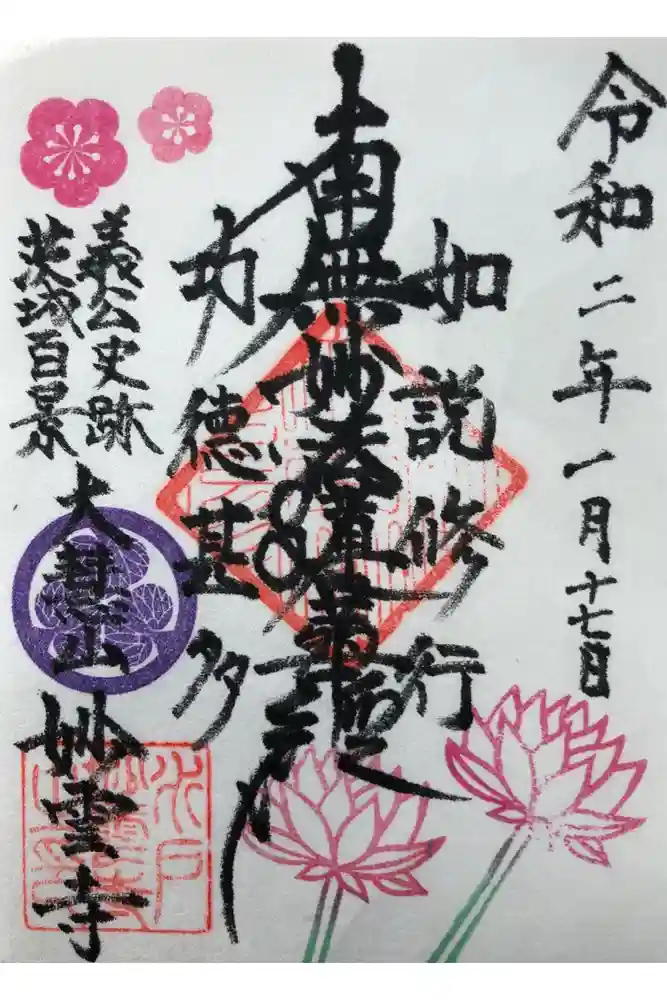 令和二年一月十七日
如説修行
南無妙法蓮華経
功徳甚多
義公史跡
茨城百景
大慧山妙雲寺
水戸